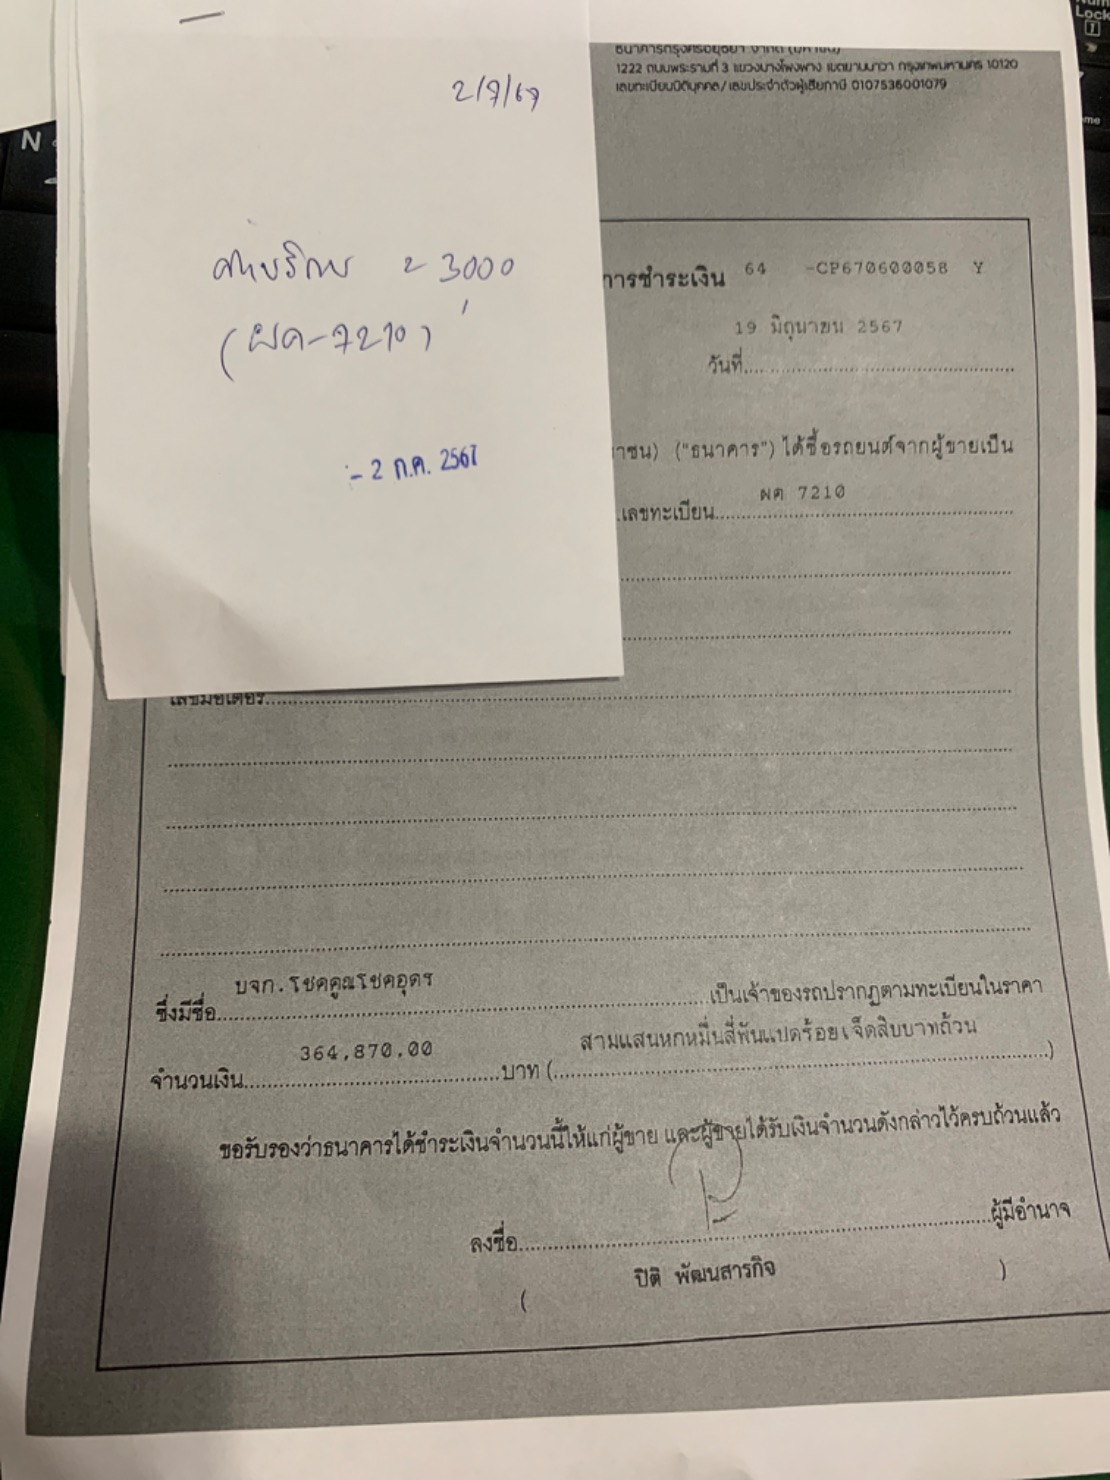 2/7/67
ค่าบริการ = 3000
(ผค-7210)
- 2 ก.ค. 2567
ธนาคารกรุงศรีอยุธยา จำกัด (มหาชน)
1222 ถนนพระรามที่ 3 แขวงบางโพงพาง เขตยานนาวา กรุงเทพมหานคร 10120
เลขทะเบียนนิติบุคคล/เลขประจำตัวผู้เสียภาษี 0107536001079
การชำระเงิน 64 -CP670600058 Y
19 มิถุนายน 2567
วันที่
าชน) ("ธนาคาร") ได้ซื้อรถยนต์จากผู้ขายเป็น
เลขทะเบียน ผค 7210
เลขมอเตอร์
ซึ่งมีชื่อ บจก.โชคคูณโชคอุดร เป็นเจ้าของรถปรากฏตามทะเบียนในราคา
จำนวนเงิน 364,870.00 บาท (สามแสนหกหมื่นสี่พันแปดร้อยเจ็ดสิบบาทถ้วน)
ขอรับรองว่าธนาคารได้ชำระเงินจำนวนนี้ให้แก่ผู้ขาย และผู้ขายได้รับเงินจำนวนดังกล่าวไว้ครบถ้วนแล้ว
ลงชื่อ ผู้มีอำนาจ
( ปิติ พัฒนสารกิจ )